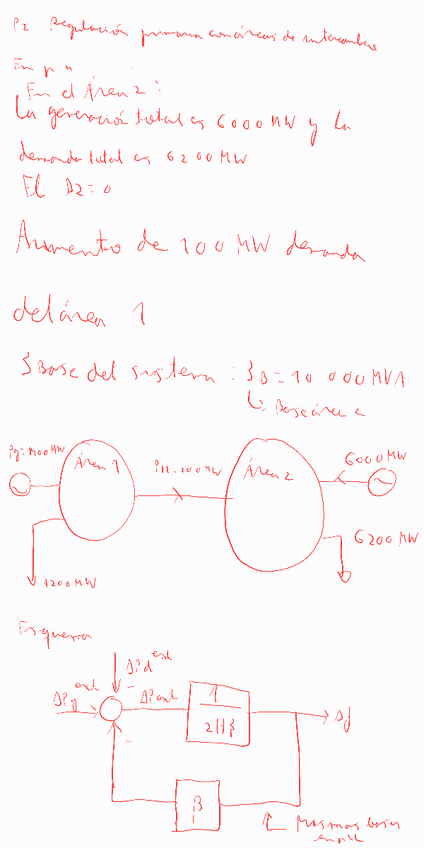 P2 Regulación primaria con áreas de intercambio
En p u
En el Área 2:
La generación total es 6000 MW y la
demanda total es 6200 MW
El D2=0
Aumento de 100 MW demanda
del área 1
SBase del sistema: SB=10 000 MVA
Base área 2
Área 1
Área 2
6000 MW
6200 MW
1200 MW
Esquema
ΔPd ext
ΔPg ext
ΔP ext
1
2H
Δf
β
mismas bases